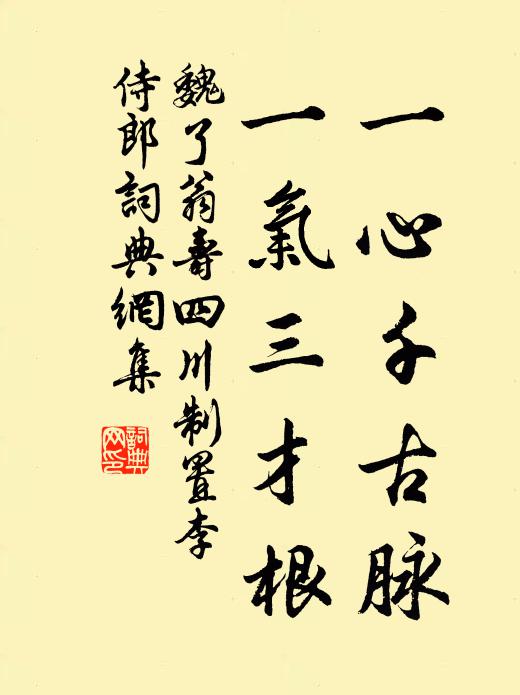 一心千古脉
一氣三才根
魏了翁壽四川制置李
侍郎詞典網集
詞典网印